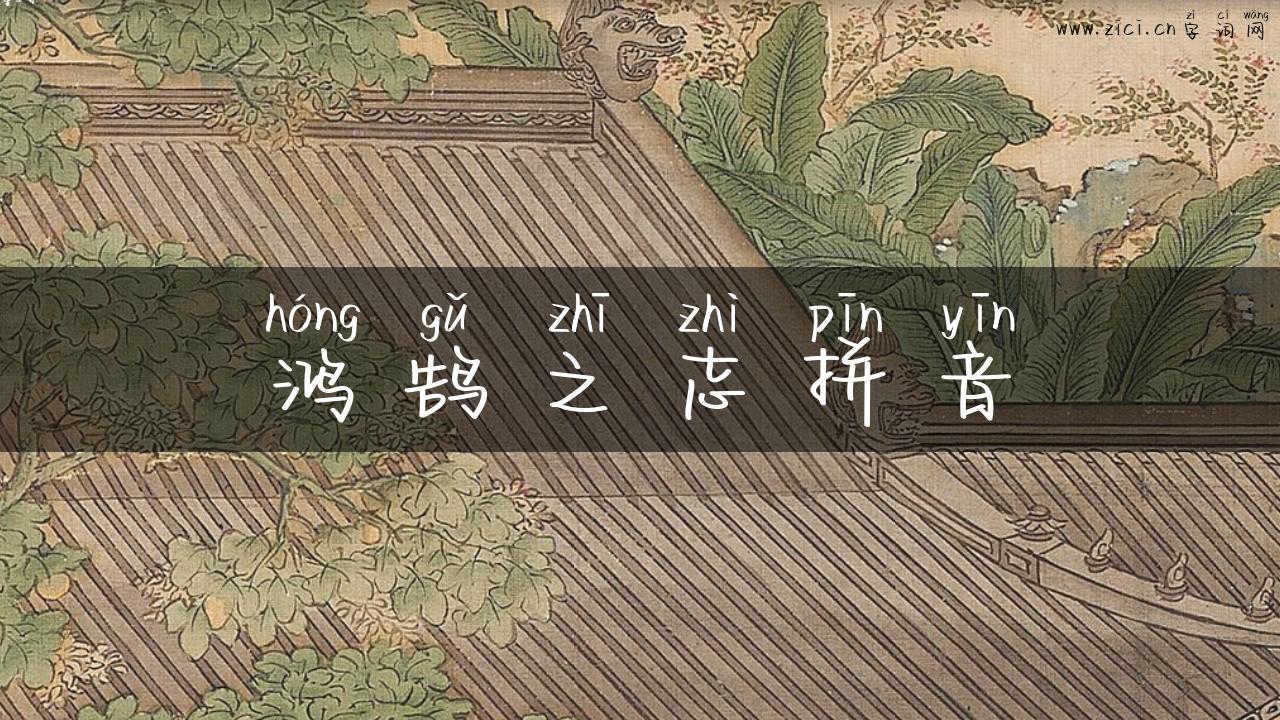 zì cí wǎng
www.zici.cn 字词网
hóng gǔ zhī zhì pīn yīn
鸿鹄之志拼音